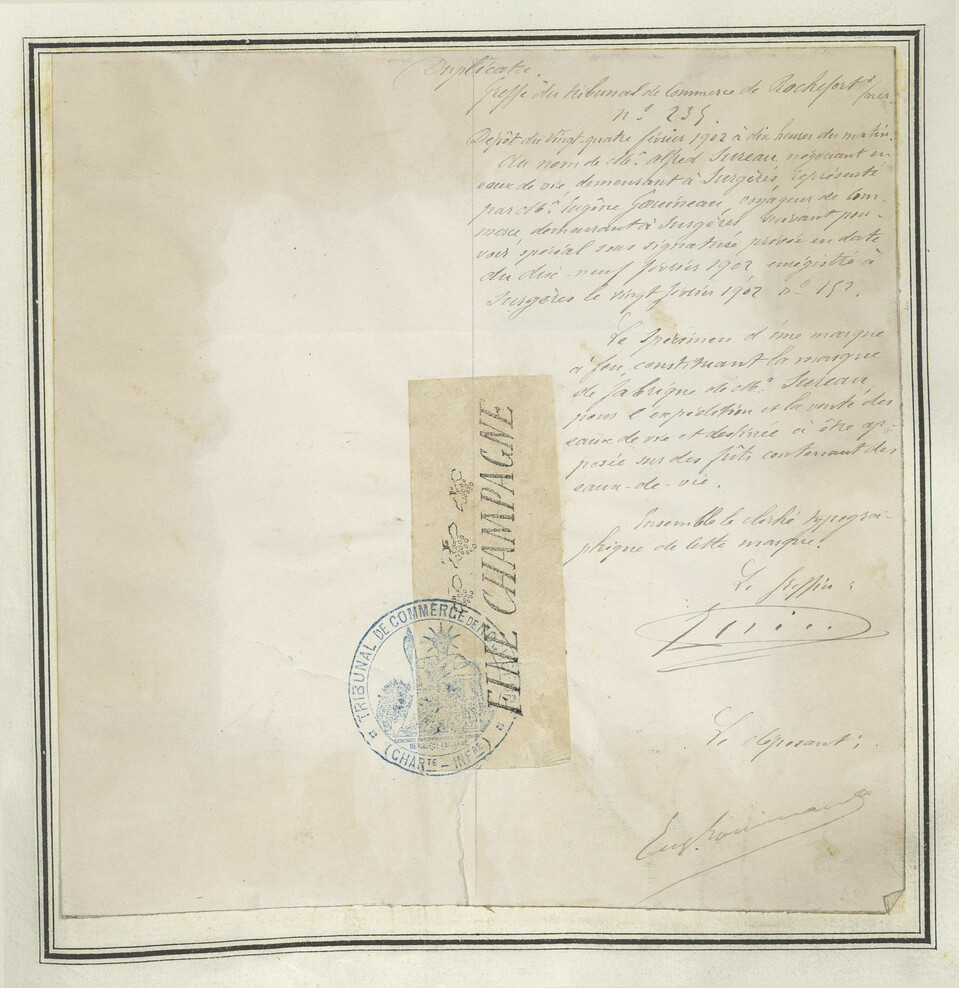 Duplicata.
Greffe du tribunal de Commerce de Rochefort s/mer.
nº 235.
Dépôt du vingt-quatre février 1902 à dix heures du matin.
Au nom de Mr. Alfred Sureau, négociant en
eaux de vie, demeurant à Surgères, représenté
par Mr. Eugène Gouineau, voyageur de Com-
merce, demeurant à Surgères suivant pou-
voir spécial sous signature privée en date
du dix-neuf février 1902 enregistré à
Surgères le vingt février 1902 nº 152.
Le spécimen d'une marque
à feu, constituant la marque
de fabrique de Mr. Sureau,
pour l'expédition et la vente des
eaux de vie et destinée à être ap-
posée sur des fûts contenant des
eaux-de-vie.
Ensemble le cliché typogra-
phique de cette marque.
Le Greffier :
Le déposant :
Eug. Gouineau
FINE CHAMPAGNE
TRIBUNAL DE COMMERCE DE
(CHARTE - INFRE)